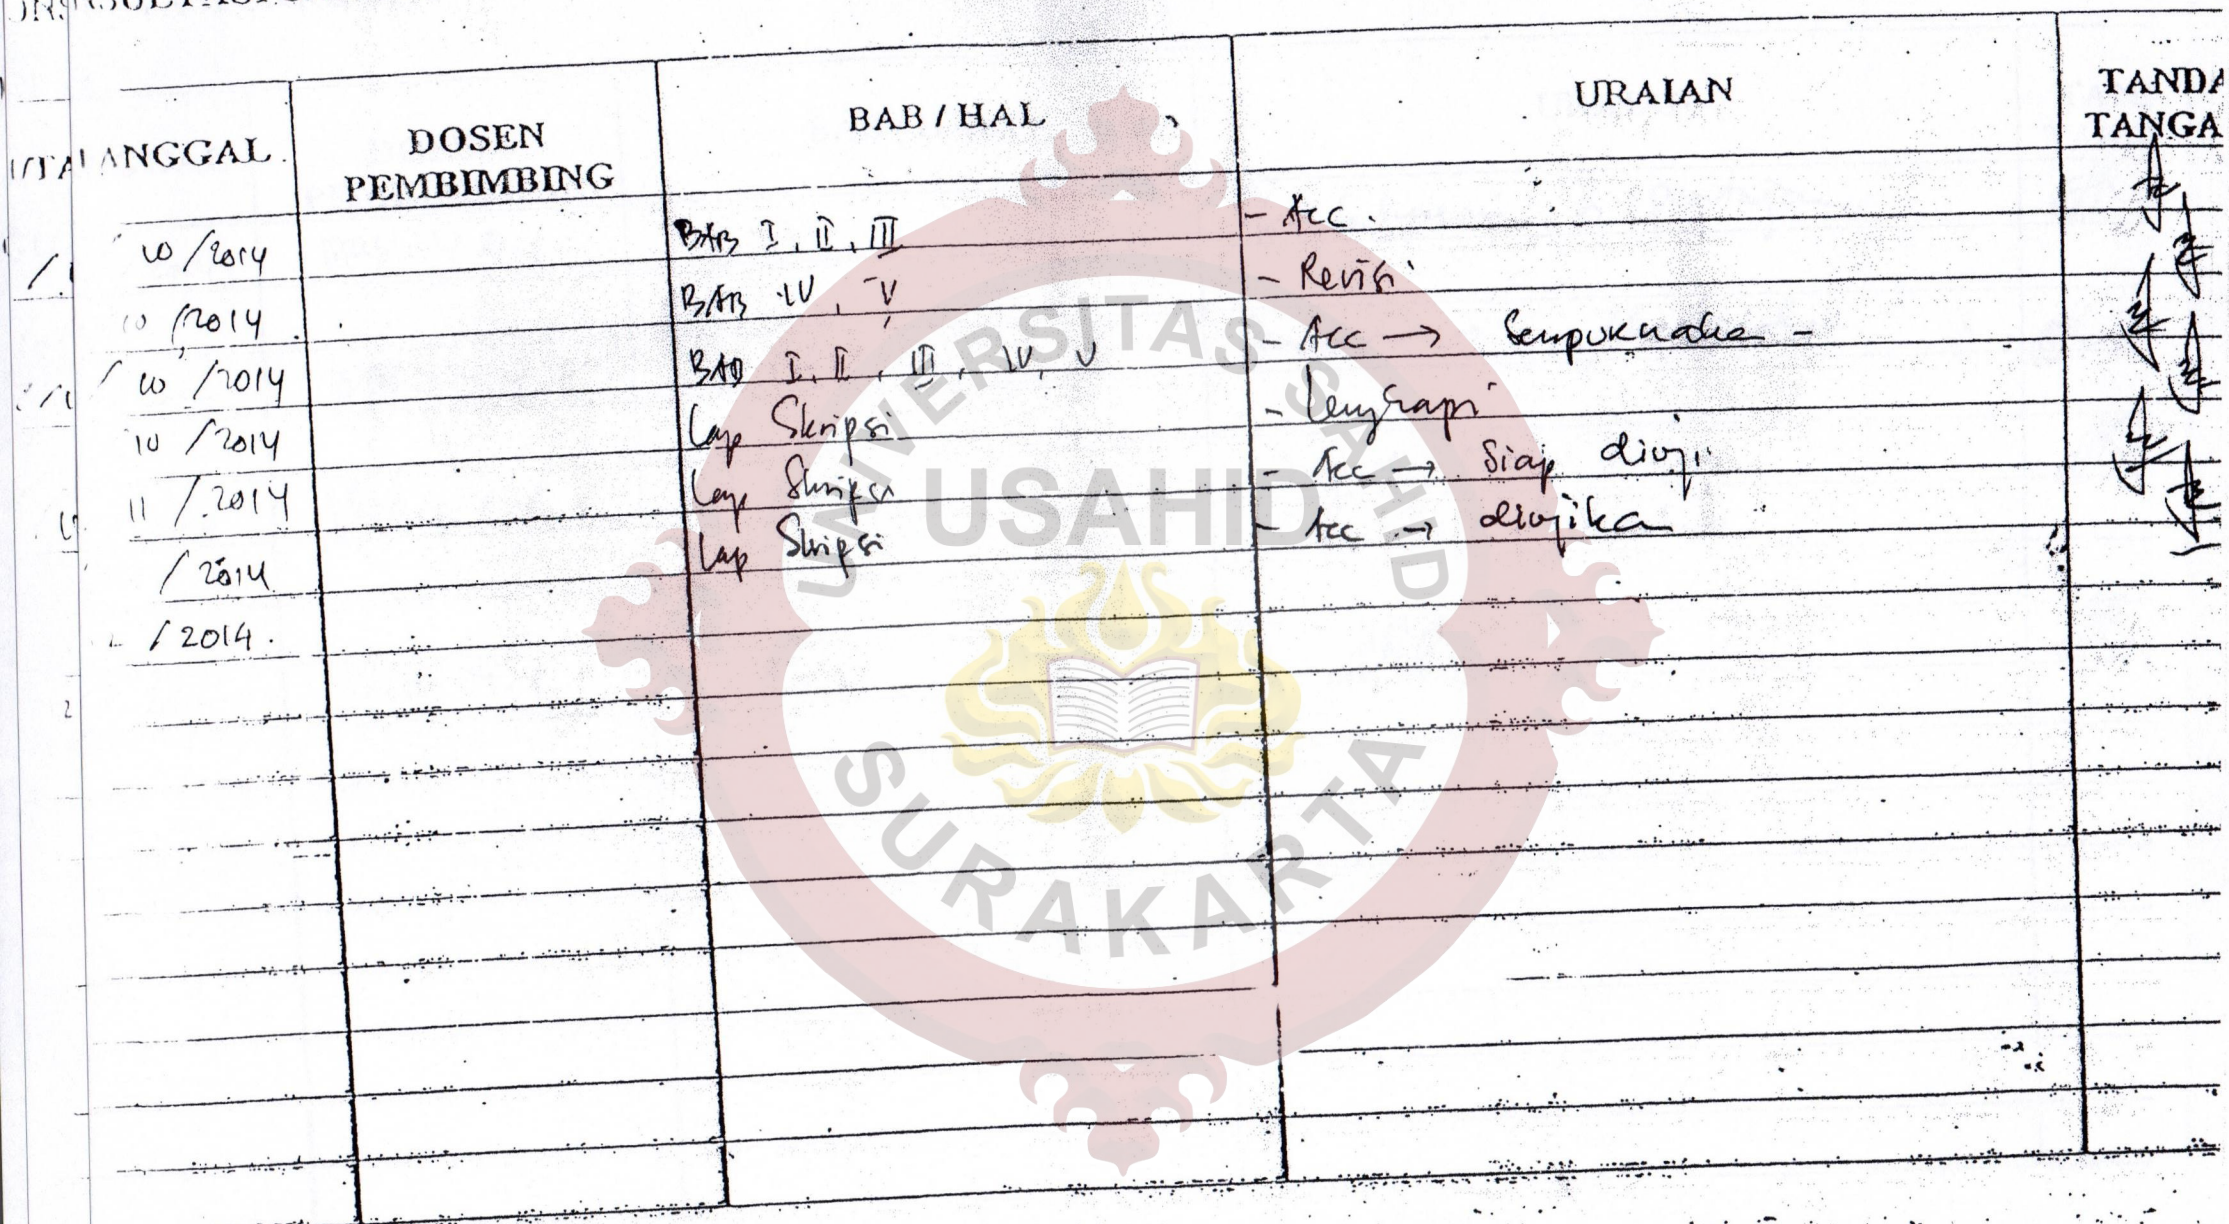 ANGGAL
DOSEN
PEMBIMBING
BAB / HAL
URAIAN
TANDA
TANGA
10/2014
BAB I, II, III
- Acc.
10/2014
BAB IV, V
- Revisi
10/2014
BAB I, II, III, IV, V
- Acc →
10/2014
Lap Skripsi
- Lengkapi
11/2014
Lap Skripsi
- Acc → Siap diuji
/2014
Lap Skripsi
- Acc → diujika
/2014.
UNIVERSITAS SAHID
USAHID
SURAKARTA